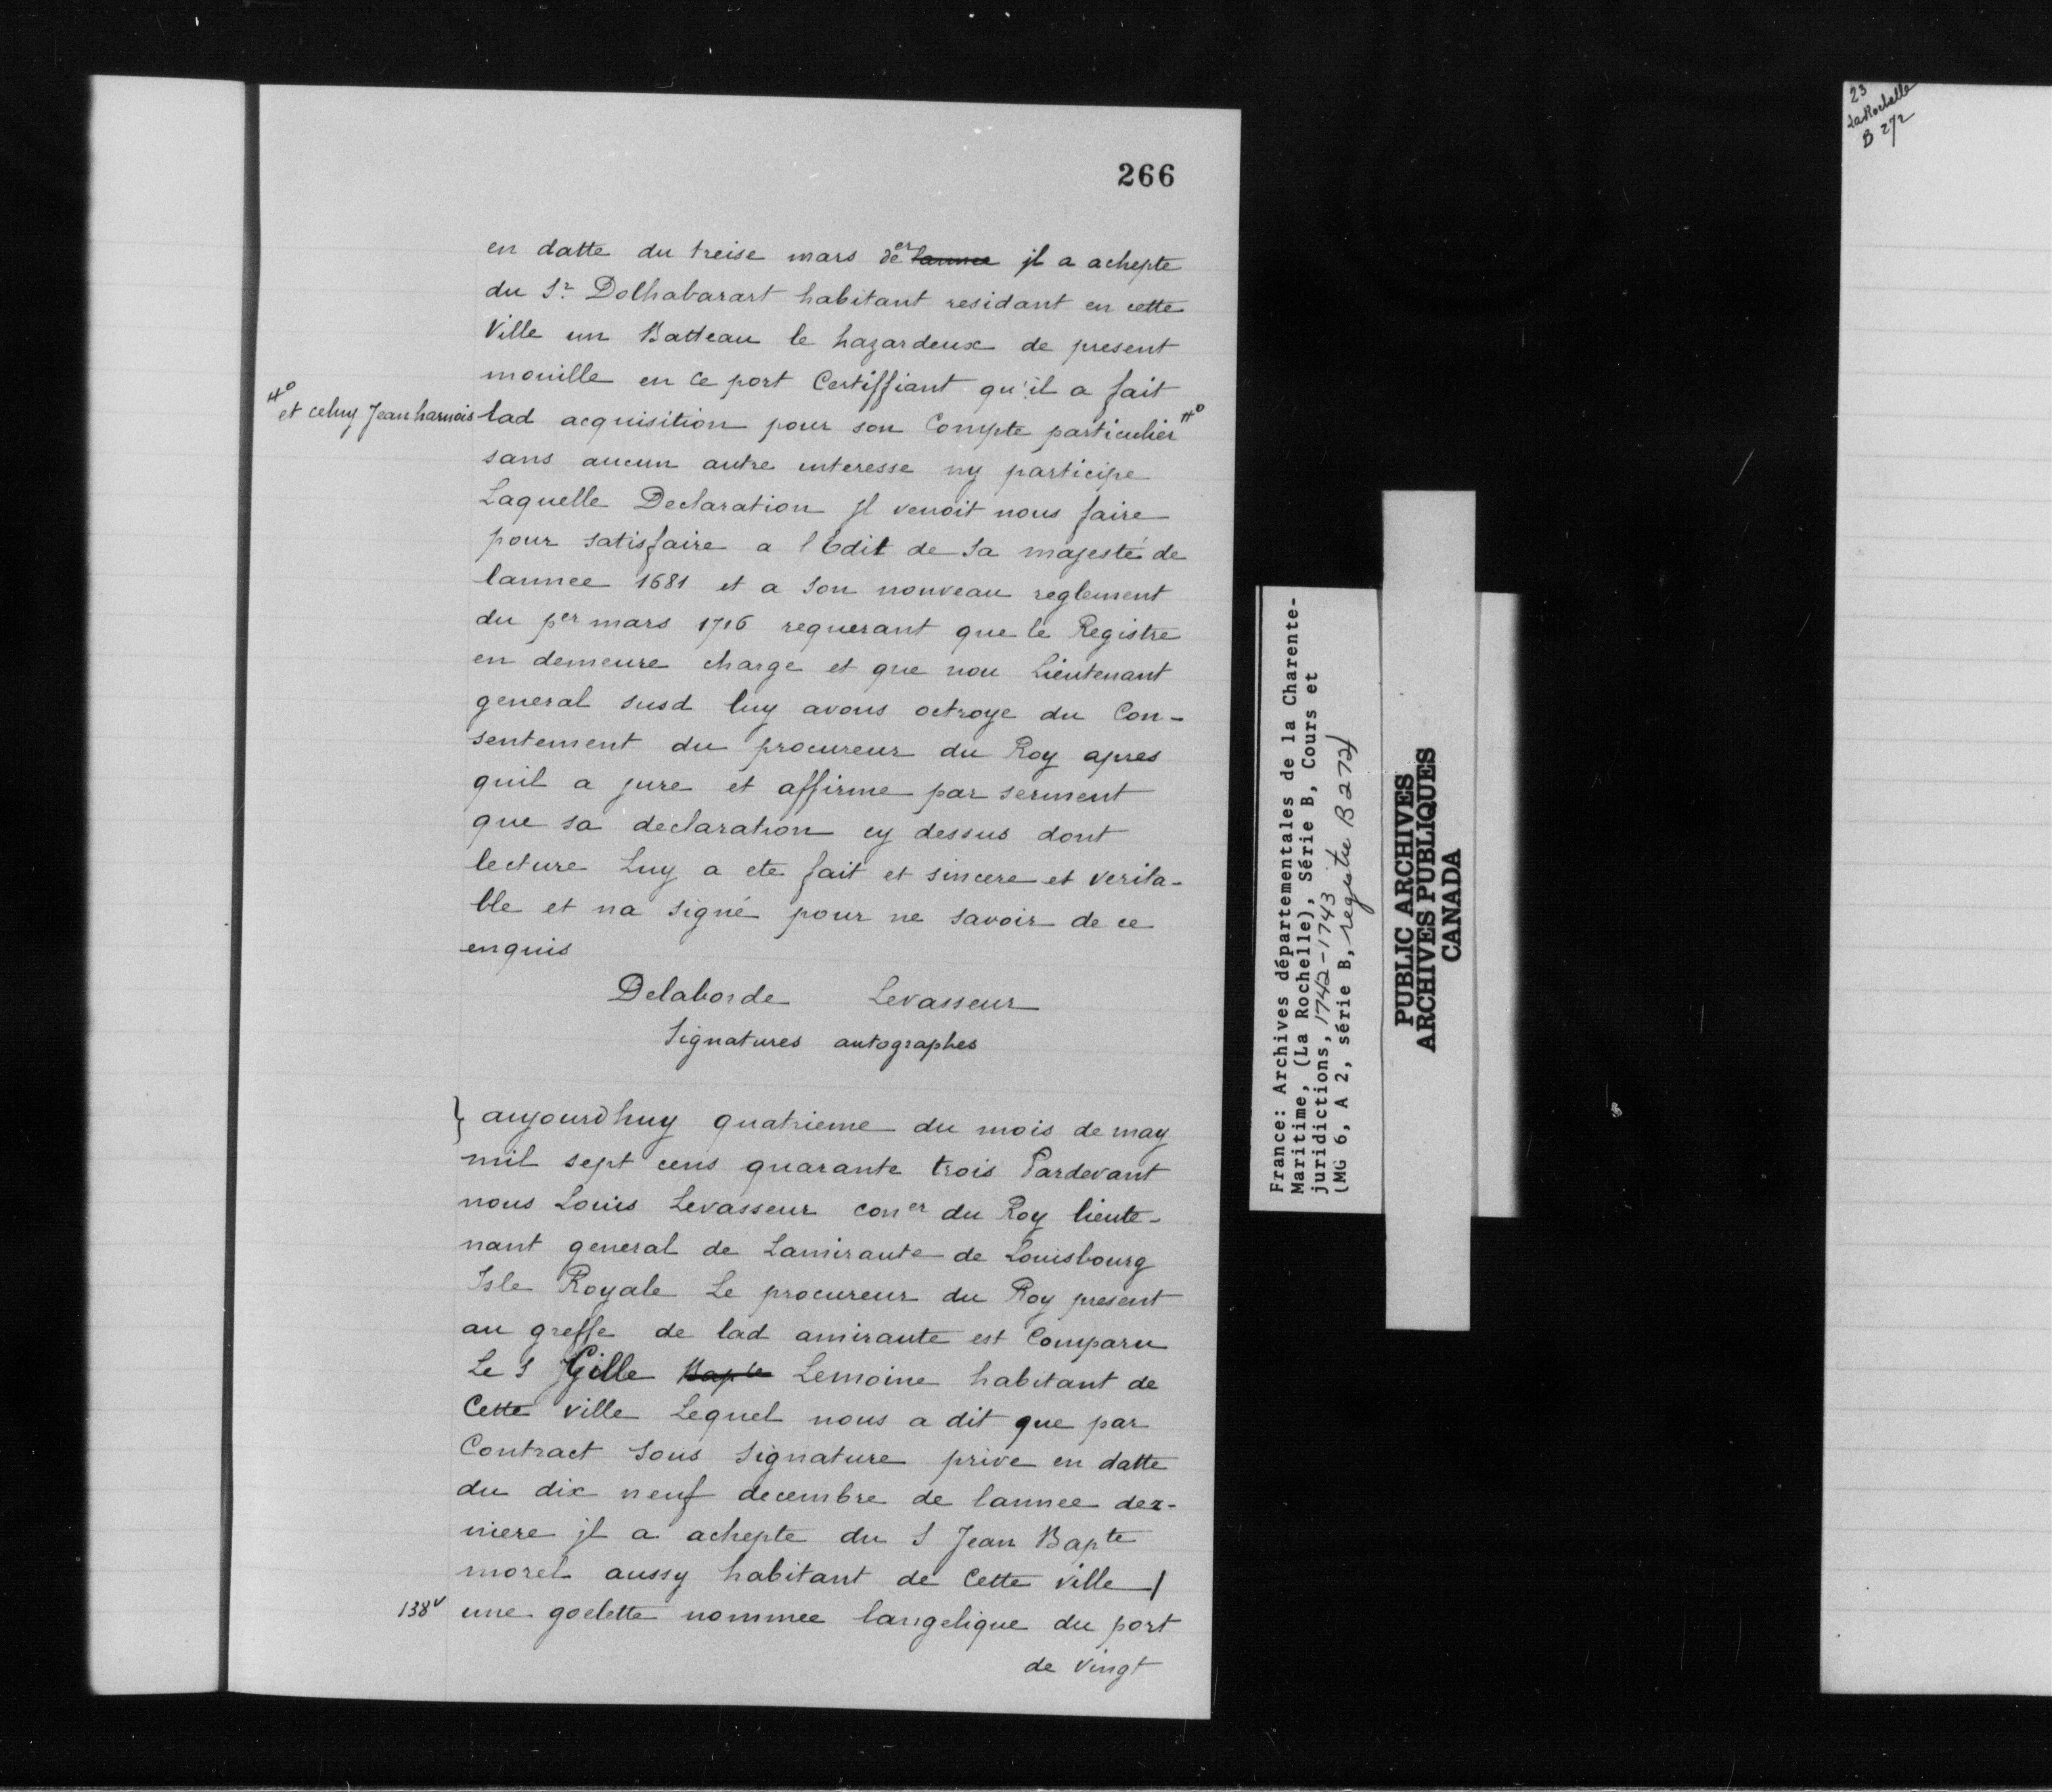 266
en datte du treise mars der lannee jl a achepte
du Sr Dolhabarart habitant residant en cette
Ville un Batteau le hazardeux de present
mouille en ce port Certiffiant qu'il a fait
#o et celuy Jean harnois
lad acquisition pour son Compte particulier #o
sans aucun autre interesse ny participe
Laquelle Declaration Jl venoit nous faire
pour satisfaire a l'Edit de Sa majesté de
lannee 1681 et a Son nouveau reglement
du per mars 1716 requerant que le Registre
en demeure charge et que nou Lieutenant
general susd luy avons octroye du Con-
sentement du procureur du Roy apres
quil a jure et affirme par serment
que sa declaration cy dessus dont
lecture Luy a ete fait et sincere et verita-
ble et na signé pour ne savoir de ce
enquis
Delaborde Levasseur
Signatures autographes
} aujourdhuy quatrieme du mois de may
mil sept cens quarante trois Pardevant
nous Louis Levasseur coner du Roy lieute-
nant general de Lamiraute de Louisbourg
Isle Royale Le procureur du Roy present
au greffe de lad amiraute est Comparu
Le S Gille Bapte Lemoine habitant de
Cette ville Lequel nous a dit que par
Contract Sous Signature prive en datte
du dix neuf decembre de lannee der-
niere jl a achepte du S Jean Bapte
morel aussy habitant de Cette ville /
138v une goelette nommee langelique du port
de vingt
France: Archives départementales de la Charente-
Maritime, (La Rochelle), Série B, Cours et
juridictions, 1742-1743
(MG 6, A 2, série B, registre B 272)
PUBLIC ARCHIVES
ARCHIVES PUBLIQUES
CANADA
23
La Rochelle
B 272